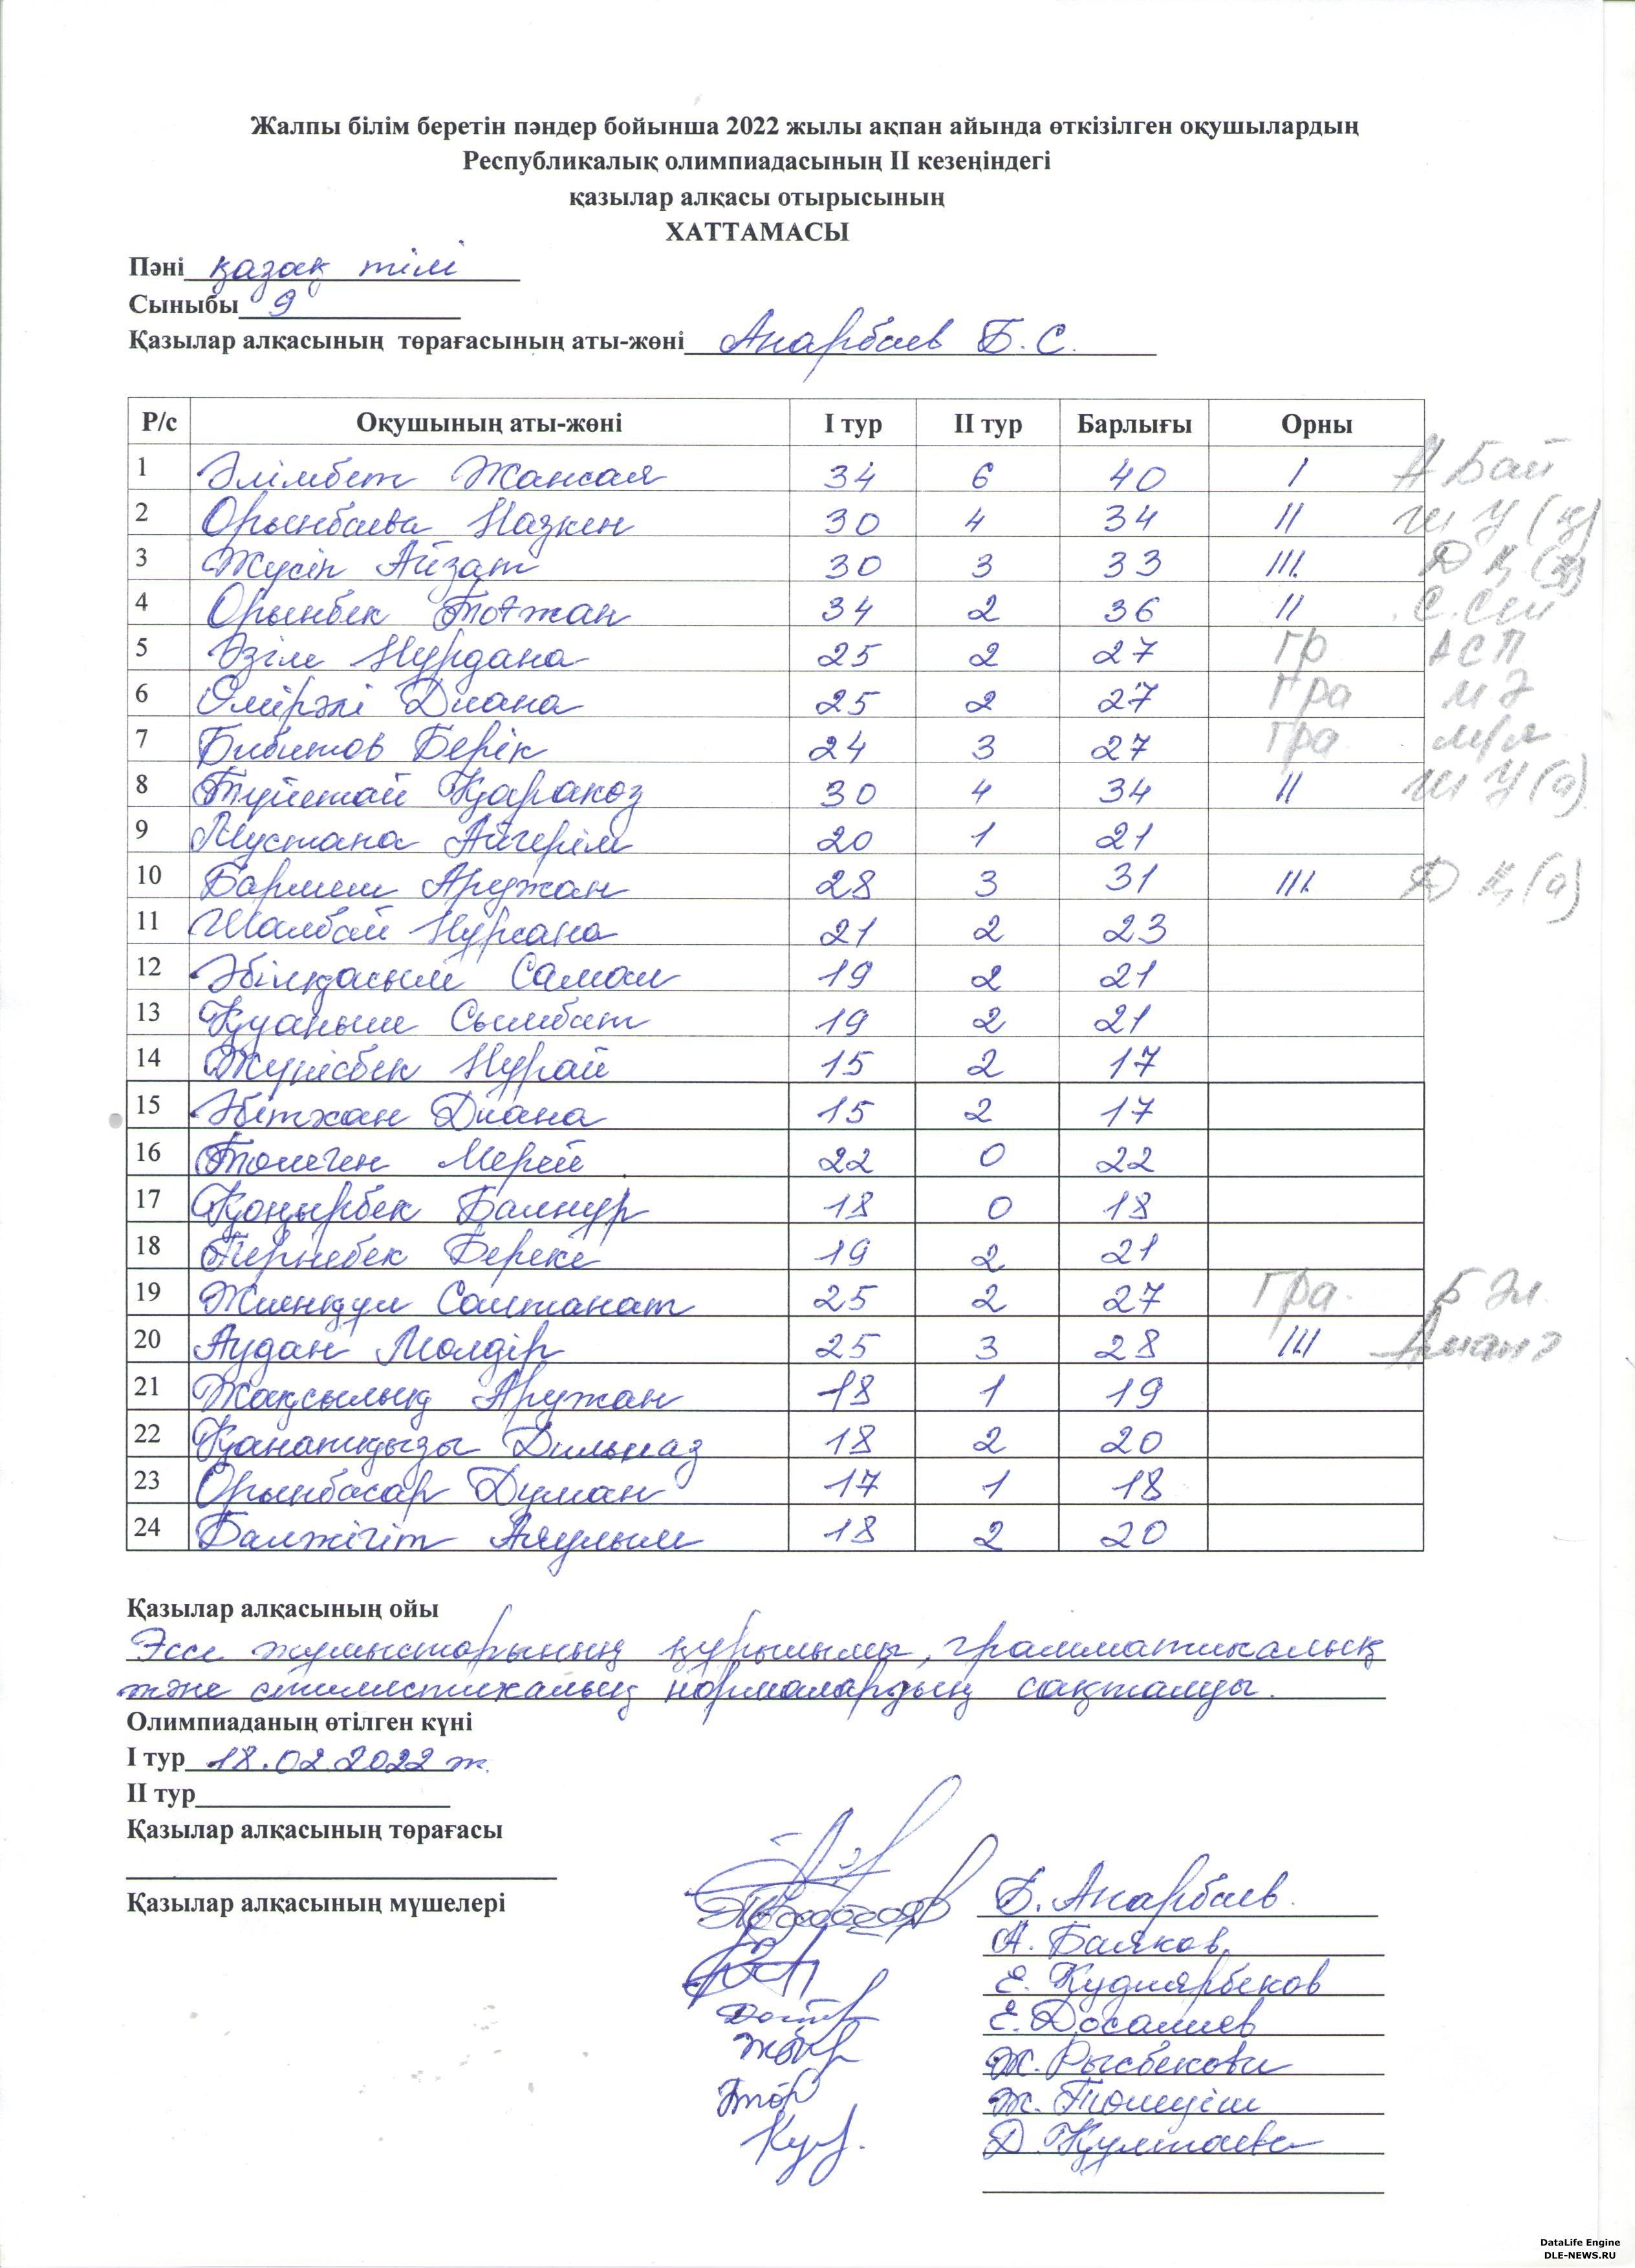 Жалпы білім беретін пәндер бойынша 2022 жылы ақпан айында өткізілген оқушылардың
Республикалық олимпиадасының II кезеңіндегі
қазылар алқасы отырысының
ХАТТАМАСЫ
Пәні қазақ тілі
Сыныбы 9
Қазылар алқасының төрағасының аты-жөні Анарбаев Б. С.
Р/с Оқушының аты-жөні I тур II тур Барлығы Орны
1 Әлімбет Жансая 34 6 40 I А Бай
2 Орынбаева Назкен 30 4 34 II Ш У (қ)
3 Жүсіп Айзат 30 3 33 III Д Қ
4 Орынбек Тоғжан 34 2 36 II С. Сей
5 Әзім Нұрдана 25 2 27 гр АСП
6 Өмірәлі Диана 25 2 27 гра М Ә
7 Берік 24 3 27 гра
8 Қаракөз 30 4 34 II Ш У (а)
9 Мустапа Айгерім 20 1 21
10 Аружан 28 3 31 III Д Қ (а)
11 Шалбай Нұрсана 21 2 23
12 Әбілқасым Самал 19 2 21
13 Қуаныш Сымбат 19 2 21
14 Жүнісбек Нұрай 15 2 17
15 Диана 15 2 17
16 Төлеген Мерей 22 0 22
17 Қоңырбек Балнұр 18 0 18
18 Пернебек Береке 19 2 21
19 Жиенқұл Салтанат 25 2 27 гра. Б Әл.
20 Аудан Молдір 25 3 28 III
21 Жақсылық Аружан 18 1 19
22 Қанатқызы Дильназ 18 2 20
23 Орынбасар Думан 17 1 18
24 Балжігіт Аяулым 18 2 20
Қазылар алқасының ойы
Эссе жұмыстарының құрылымы, грамматикалық
және стилистикалық нормалардың сақталуы.
Олимпиаданың өтілген күні
I тур 18.02.2022 ж.
II тур
Қазылар алқасының төрағасы
Қазылар алқасының мүшелері
Б. Анарбаев.
А. Баяков
Е. Құдиярбеков
Е. Досалиев
Ж. Рысбекова
Ж.
Д. Құлтаева
DataLife Engine
DLE-NEWS.RU